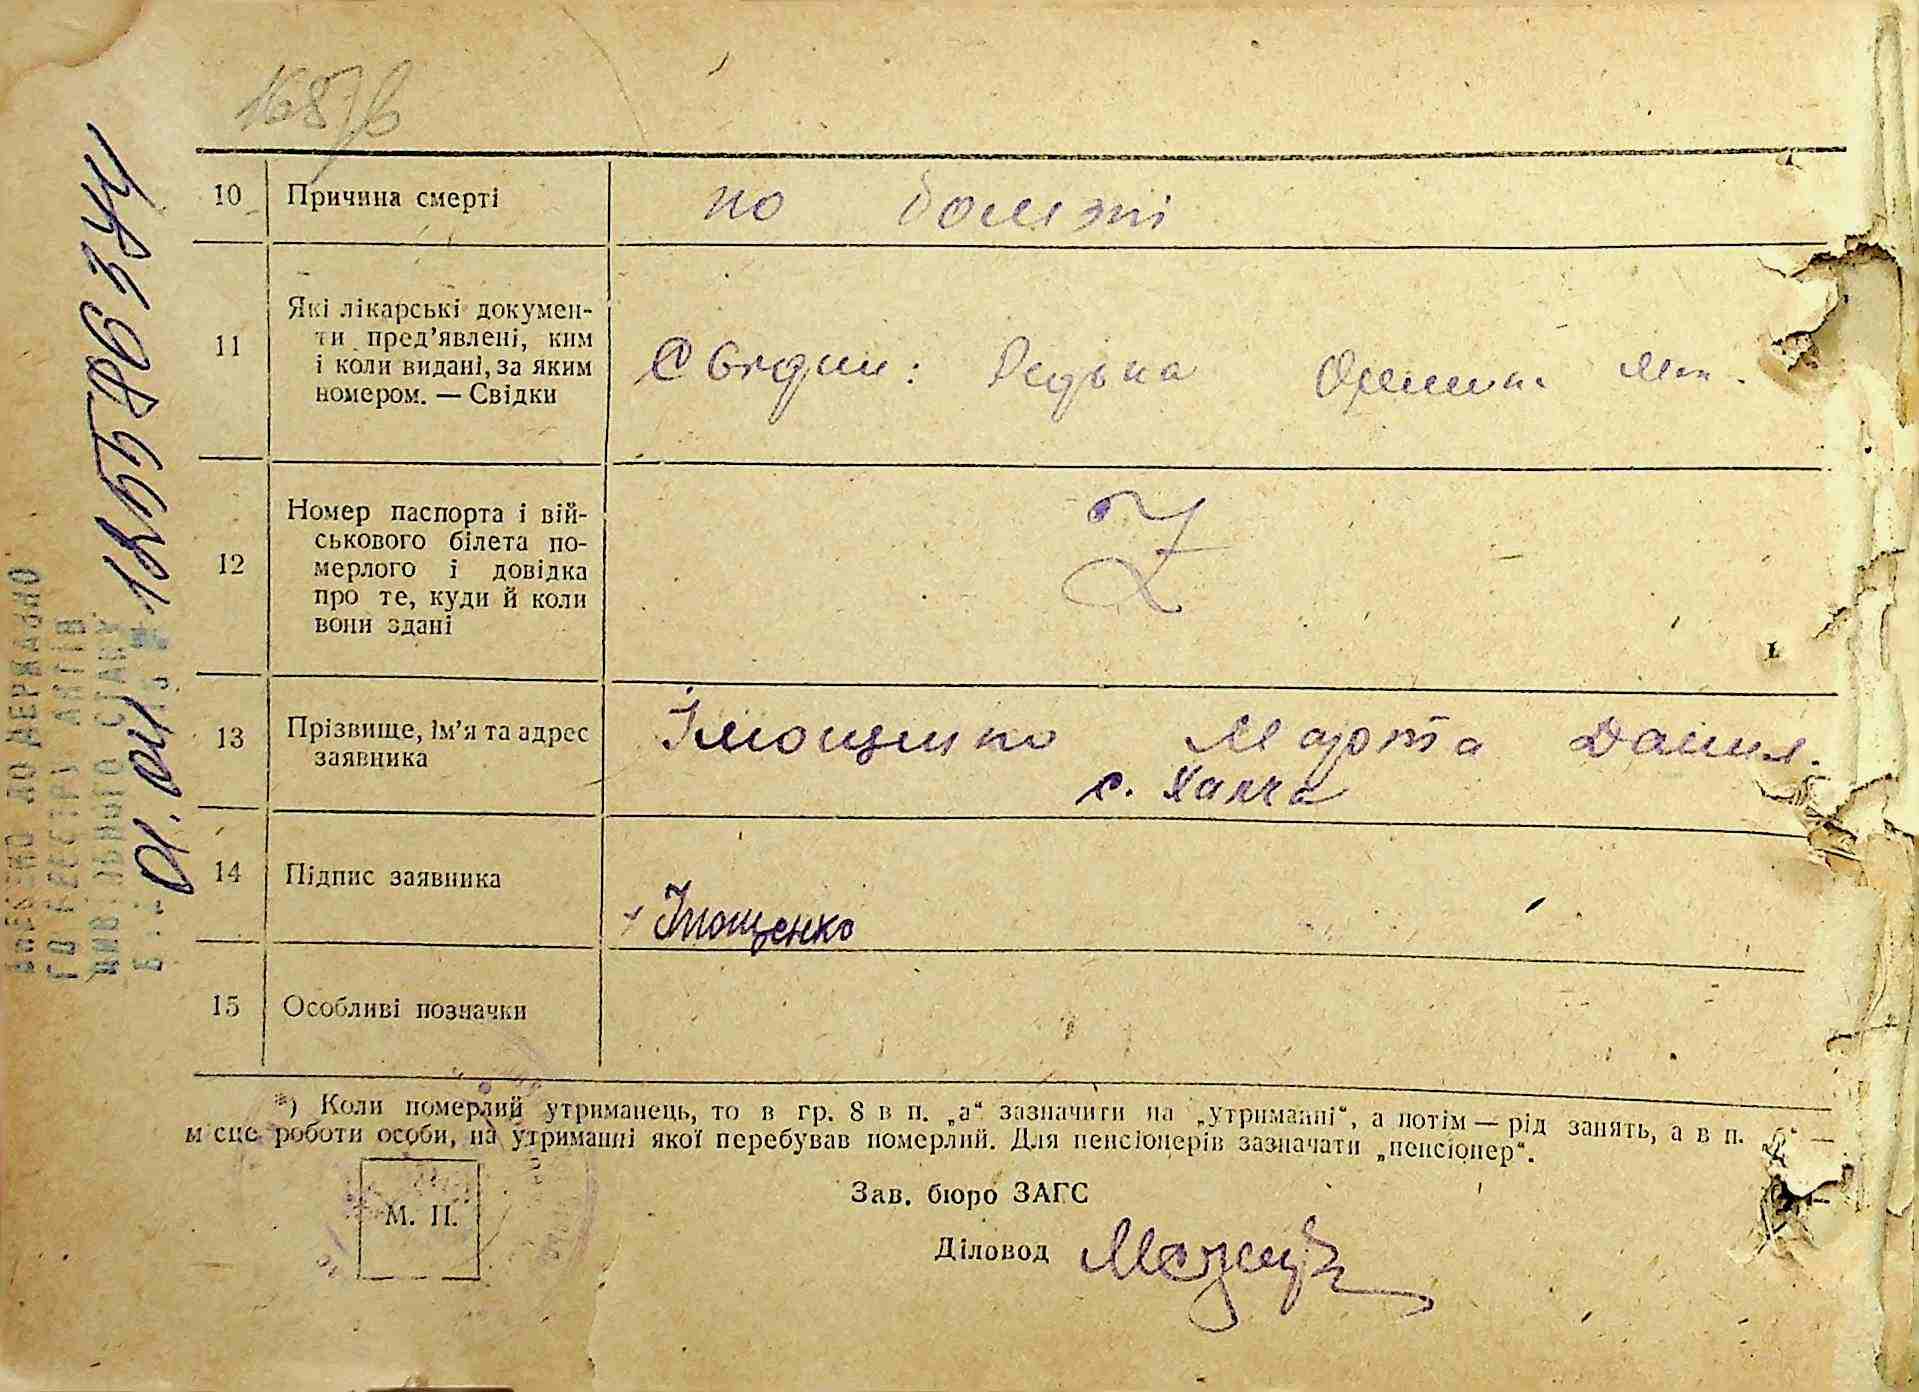 10 Причина смерті по болезні
11 Які лікарські докумен-
ти пред’явлені, ким
і коли видані, за яким
номером. — Свідки
Редька
12 Номер паспорта і вій-
ськового білета по-
мерлого і довідка
про те, куди й коли
вони здані
Z
13 Прізвище, ім’я та адрес
заявника
Імощенко Марта Данил.
с. Халча
14 Підпис заявника
+ Імощенко
15 Особливі позначки
*) Коли померлий утриманець, то в гр. 8 в п. „а“ зазначити на „утриманні“, а потім — рід занять, а в п. „б“ —
місце роботи особи, на утриманні якої перебував померлий. Для пенсіонерів зазначати „пенсіонер“.
М. П.
Зав. бюро ЗАГС
Діловод
ВНЕСЕНО ДО ДЕРЖАВНО
ГО РЕЄСТРУ АКТІВ
ЦИВІЛЬНОГО СТАНУ